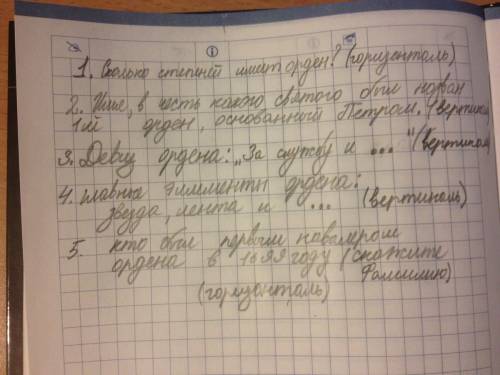 1. Сколько степеней имеет орден? (горизонталь)
2. Имя, в честь какого святого был назван
1й орден, основанный Петром. (вертикаль
3. Девиз ордена: "За службу и ..." (вертикаль)
4. главные элименты ордена:
звезда, лента и ... (вертикаль)
5. кто был первым кавалером
ордена в 1699 году (скажите
Фамилию)
(горизонталь)